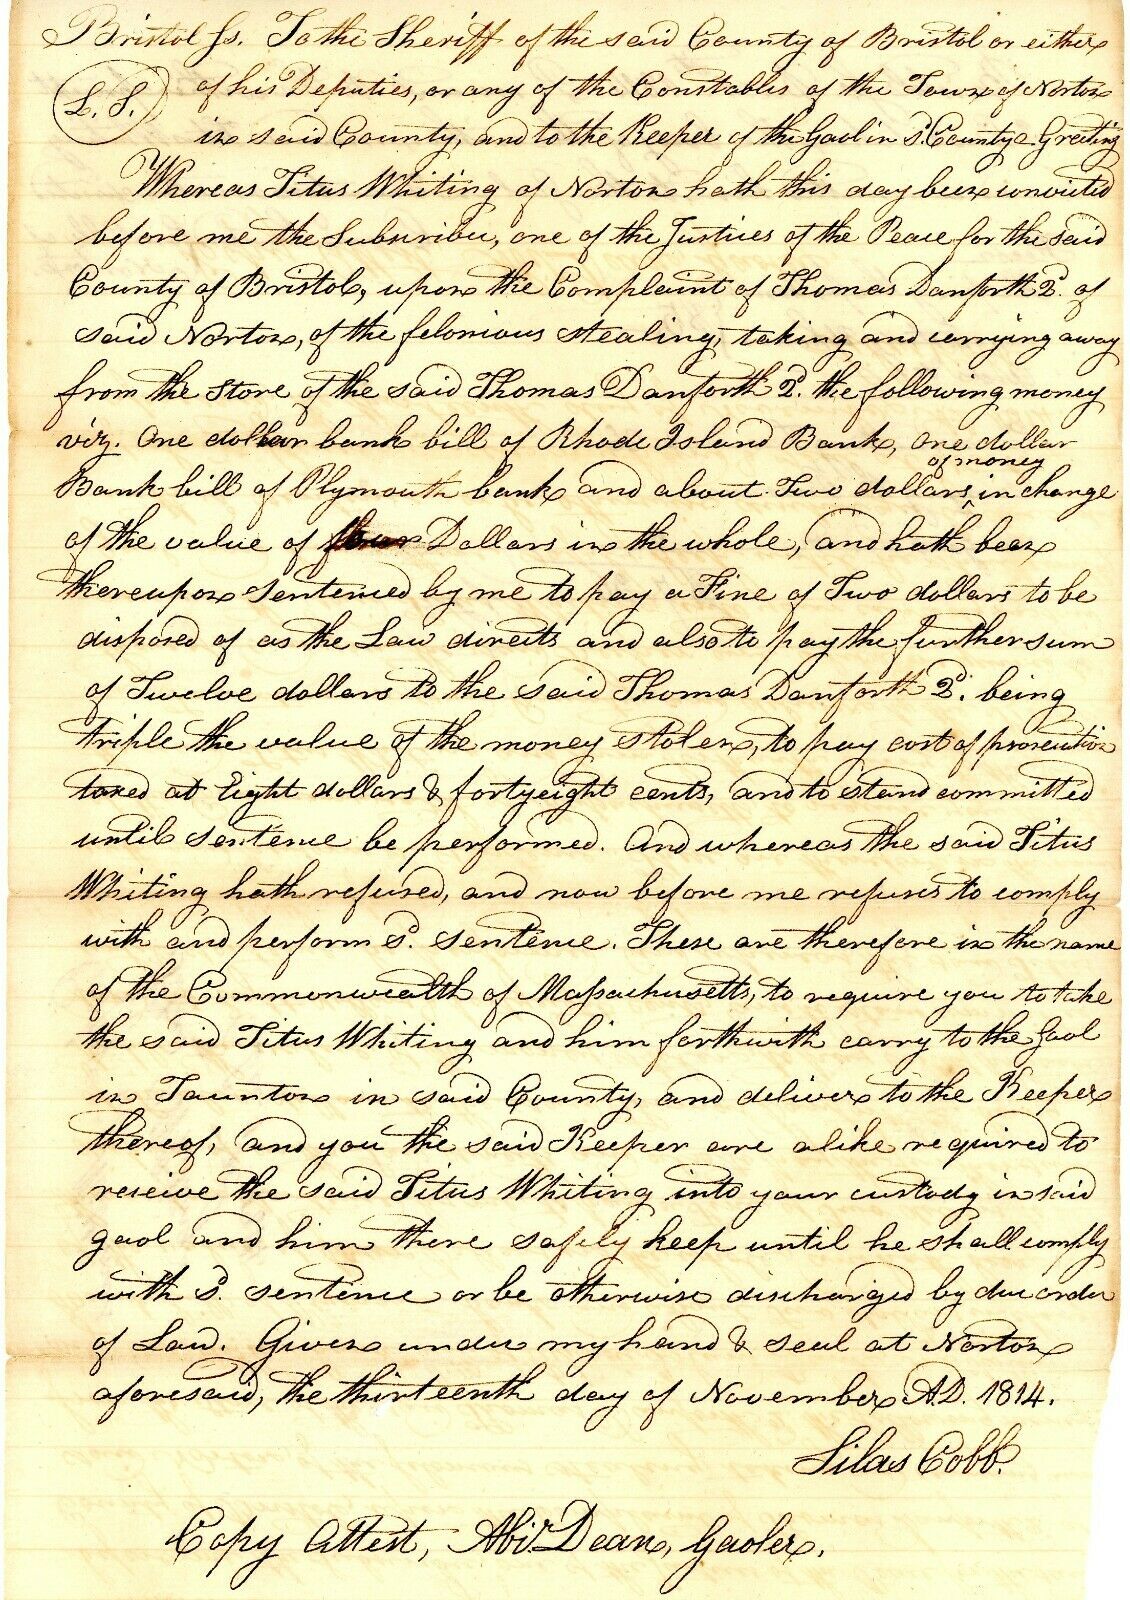 Bristol ss. To the Sheriff of the said County of Bristol or either
L. S.
of his Deputies, or any of the Constables of the Town of Norton
in said County, and to the Keeper of the Gaol in sd. County Greeting
Whereas Titus Whiting of Norton hath this day been convicted
before me the Subscriber, one of the Justices of the Peace for the said
County of Bristol, upon the Complaint of Thomas Danforth 2d. of
said Norton, of the felonious stealing, taking and carrying away
from the store of the said Thomas Danforth 2d. the following money
viz. One dollar bank bill of Rhode Island Bank, One dollar
of money
Bank bill of Plymouth bank and about Two dollars ^ in change
of the value of four Dollars in the whole, and hath been
thereupon sentenced by me to pay a Fine of Two dollars to be
disposed of as the Law directs and also to pay the further sum
of Twelve dollars to the said Thomas Danforth 2d. being
triple the value of the money stolen, to pay cost of prosecution
taxed at Eight dollars & fortyeight cents, and to stand committed
until sentence be performed. And whereas the said Titus
Whiting hath refused, and now before me refuses to comply
with and perform sd. sentence. These are therefore in the name
of the Commonwealth of Massachusetts, to require you to take
the said Titus Whiting and him forthwith carry to the Gaol
in Taunton in said County, and deliver to the Keeper
thereof, and you the said Keeper are alike required to
receive the said Titus Whiting into your custody in said
gaol and him there safely keep until he shall comply
with sd. sentence or be otherwise discharged by due order
of Law. Given under my hand & seal at Norton
aforesaid, the thirteenth day of November A.D. 1814.
Silas Cobb.
Copy Attest, Abir. Dean, Gaoler.